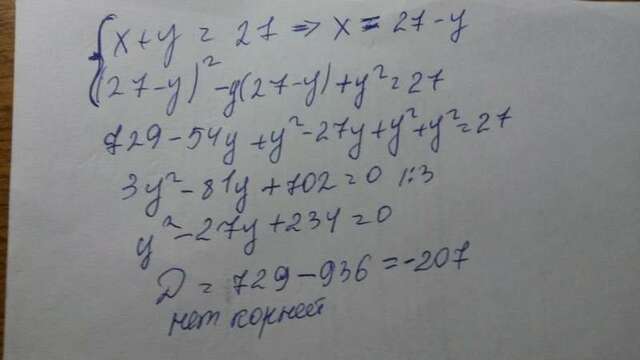 { x + y = 27 ⇒ x = 27 - y
(27-y)² - y(27-y) + y² = 27
729 - 54y + y² - 27y + y² + y² = 27
3y² - 81y + 702 = 0 |:3
y² - 27y + 234 = 0
D = 729 - 936 = -207
нет корней